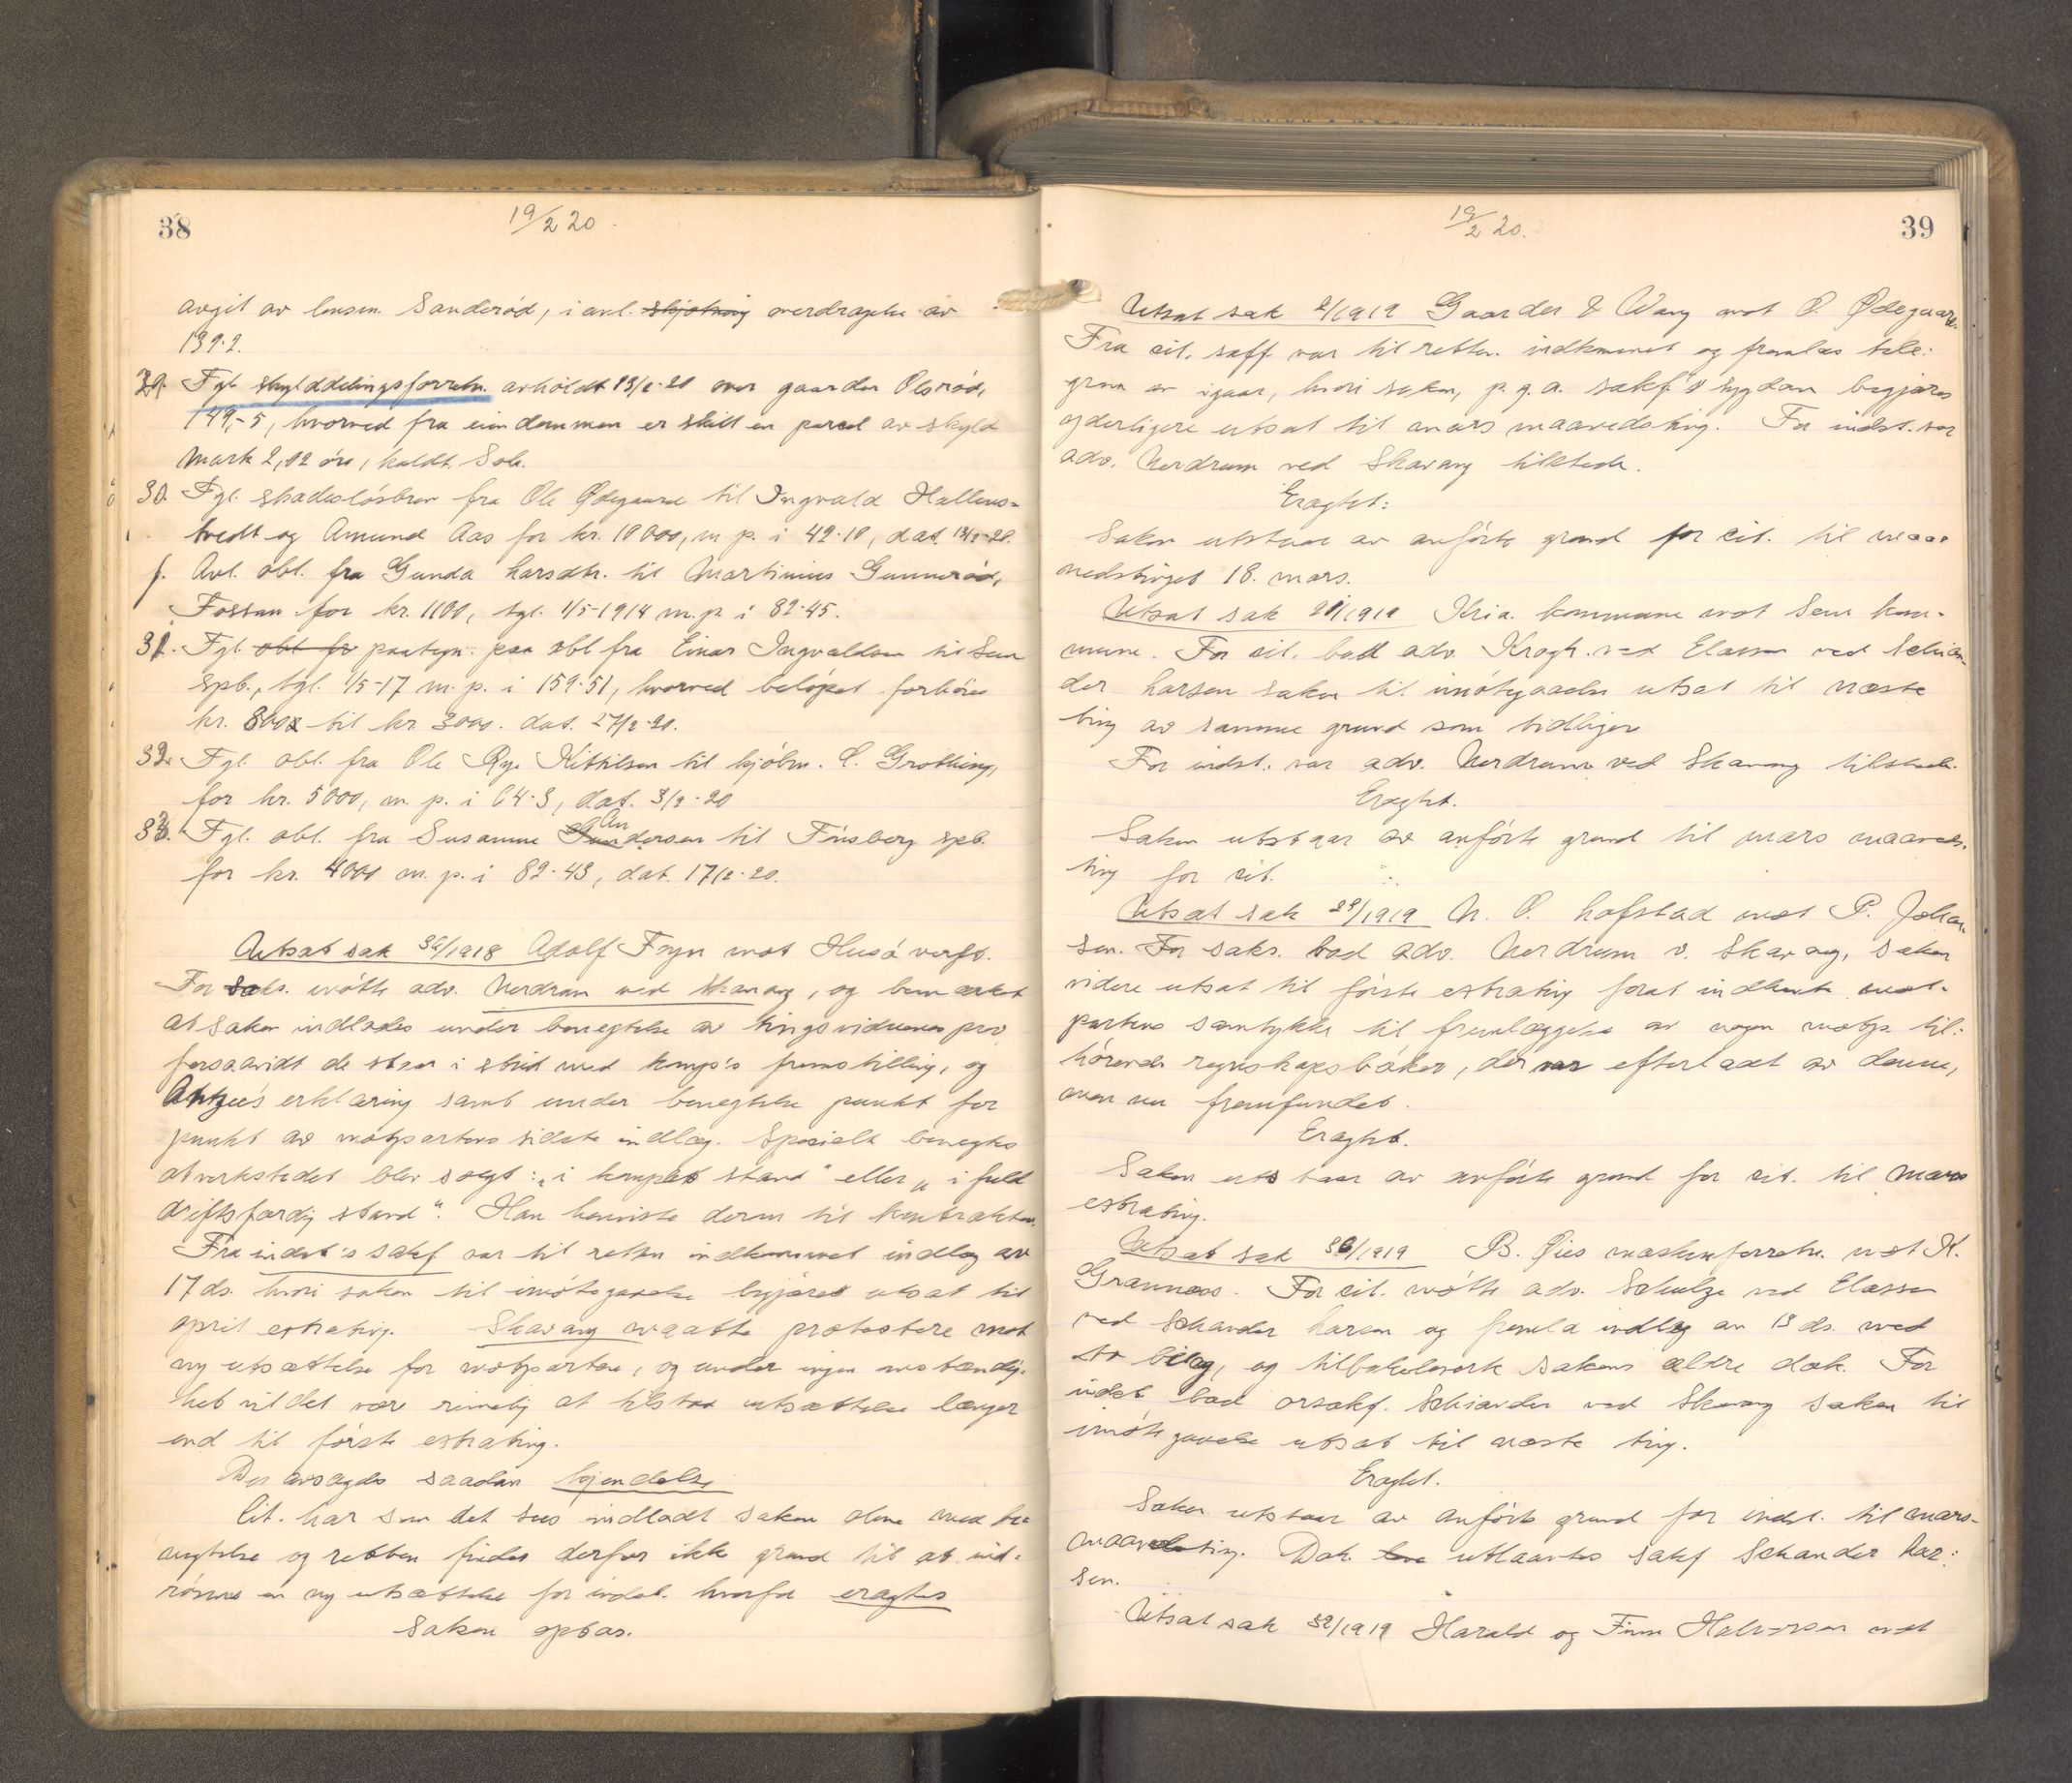 38
19/2 20
avgit av lensm. Sanderød, i anl. skjøtning overdragelse av
139.2.
29. Fgl. skylddelingsforretn. avholdt 13/2-20 over gaarden Olsrød,
149,-5, hvorved fra eiendommen er skilt en parcel av skyld
mark 2,02 øre, kaldt Sole.
30. Fgl. skadesløsbrev fra Ole Ødegaard til Ingvald Hallens-
tvedt og Amund Aas for kr. 10000, m. p. i 49-10, dat. 13/2-20.
f. Avl. obl. fra Gunda Larsdtr. til Martinius Gunnerød,
Fossan for kr. 1100, tgl. 1/5-1914 m. p. i 82-45.
31. Fgl. obl. fr paategn. paa obl fra Einar Ingvaldsen til Sem
spb., tgl. 1/5-17 m. p. i 159-51, hvorved beløpet forhøies
kr. 8000 til kr 3000. dat. 27/2-20.
32. Fgl. obl. fra Ole Rye Kittilsen til kjøbm. C. Grotting,
for kr. 5000, m. p. i 64-3, dat. 3/2-20
33. Fgl. obl. fra Susanne Andersen til Tønsberg spb.
for kr. 4000 m. p. i 82-43, dat. 17/2-20.
Utsat sak 32/1918 Adolf Foyn mot Husø verft.
For saks. møtte adv. Nerdrum ved Skavang, og bemærket
at saken indlades under benegtelse av tingsvidnenes prov
forsaavidt de staar i strid med komp's fremstilling, og
erklæring samt under benegtelse punkt for
punkt av motpartens sidste indlæg. Specielt benegtes
at verkstedet blev solgt: „i komplet stand" eller „i fuld
driftsfærdig stand". Han henviste derom til kontrakten.
Fra indst's sakf var til retten indkommet indlæg av
17 ds. hvori saken til imøtegaaelse begjæres utsat til
april extrating. Skavang maatte protestere mot
ny utsættelse for motparten, og under ingen omstændig-
het vil det være rimelig at tilstaa utsættelse længer
end til første extrating.
Der avsagdes saadan kjendelse
Cit. har som det sees indladt saken alene med be-
negtelse og retten finder derfor ikke grund til at ind-
rømme en ny utsættelse for indst. hvorfor eragtes
Saken optas.
19/2 20.
39
Utsat sak 2/1919 Gaarder & Wang mot O. Ødegaard.
Fra cit. sakf. var til retten indkommet og fremlas tele-
gram av igaar, hvori saken, p. g. a. sakf.'s sygdom begjæres
yderligere utsat til mars maanedsting. For indst. var
adv. Nerdrum ved Skavang tilstede.
Eragtet:
Saken utstaar av anførte grund for cit. til maa-
nedstinget 18. mars.
Utsat sak 21/1919 Kria. kommune mot Sem kom-
mune. For cit. bad adv. Krogh ved Elassen ved Schian-
der Larsen saken til imøtegaaelse utsat til næste
ting av samme grund som tidligere
For indst. var adv. Nerdrum ved Skavang tilstede.
Eragtet.
Saken utstaar av anførte grund til mars maaneds-
ting for cit.
Utsat sak 29/1919 N. O. Hofstad mot P. Johan-
sen. For saks. bad adv. Nerdrum v. Skavang, saken
videre utsat til første extrating forat indhente mot-
partens samtykke til fremlæggelse av nogen motp. til-
hørende regnskapsbøker, der var efterladt av denne,
men nu fremfundet.
Eragtet.
Saken utstaar av anførte grund for cit. til mars
extrating.
Utsat sak 36/1919 B. Øies maskinforretn. mot K.
Grannæss. For cit. møtte adv. Schulze ved Elassen
ved Schander Larsen og fremla indlæg av 13 ds. med
to bilag, og tilbakeleverte sakens ældre dok. For
indst. bad orsakf. Schiander ved Skavang saken til
imøtegaaelse utsat til næste ting.
Eragtet.
Saken utstaar av anførte grund for indst. til mars-
maanedsting. Dok. utlaantes sakf Schander Lar-
sen.
Utsat sak 32/1919 Harald og Finn Halvorsen mot